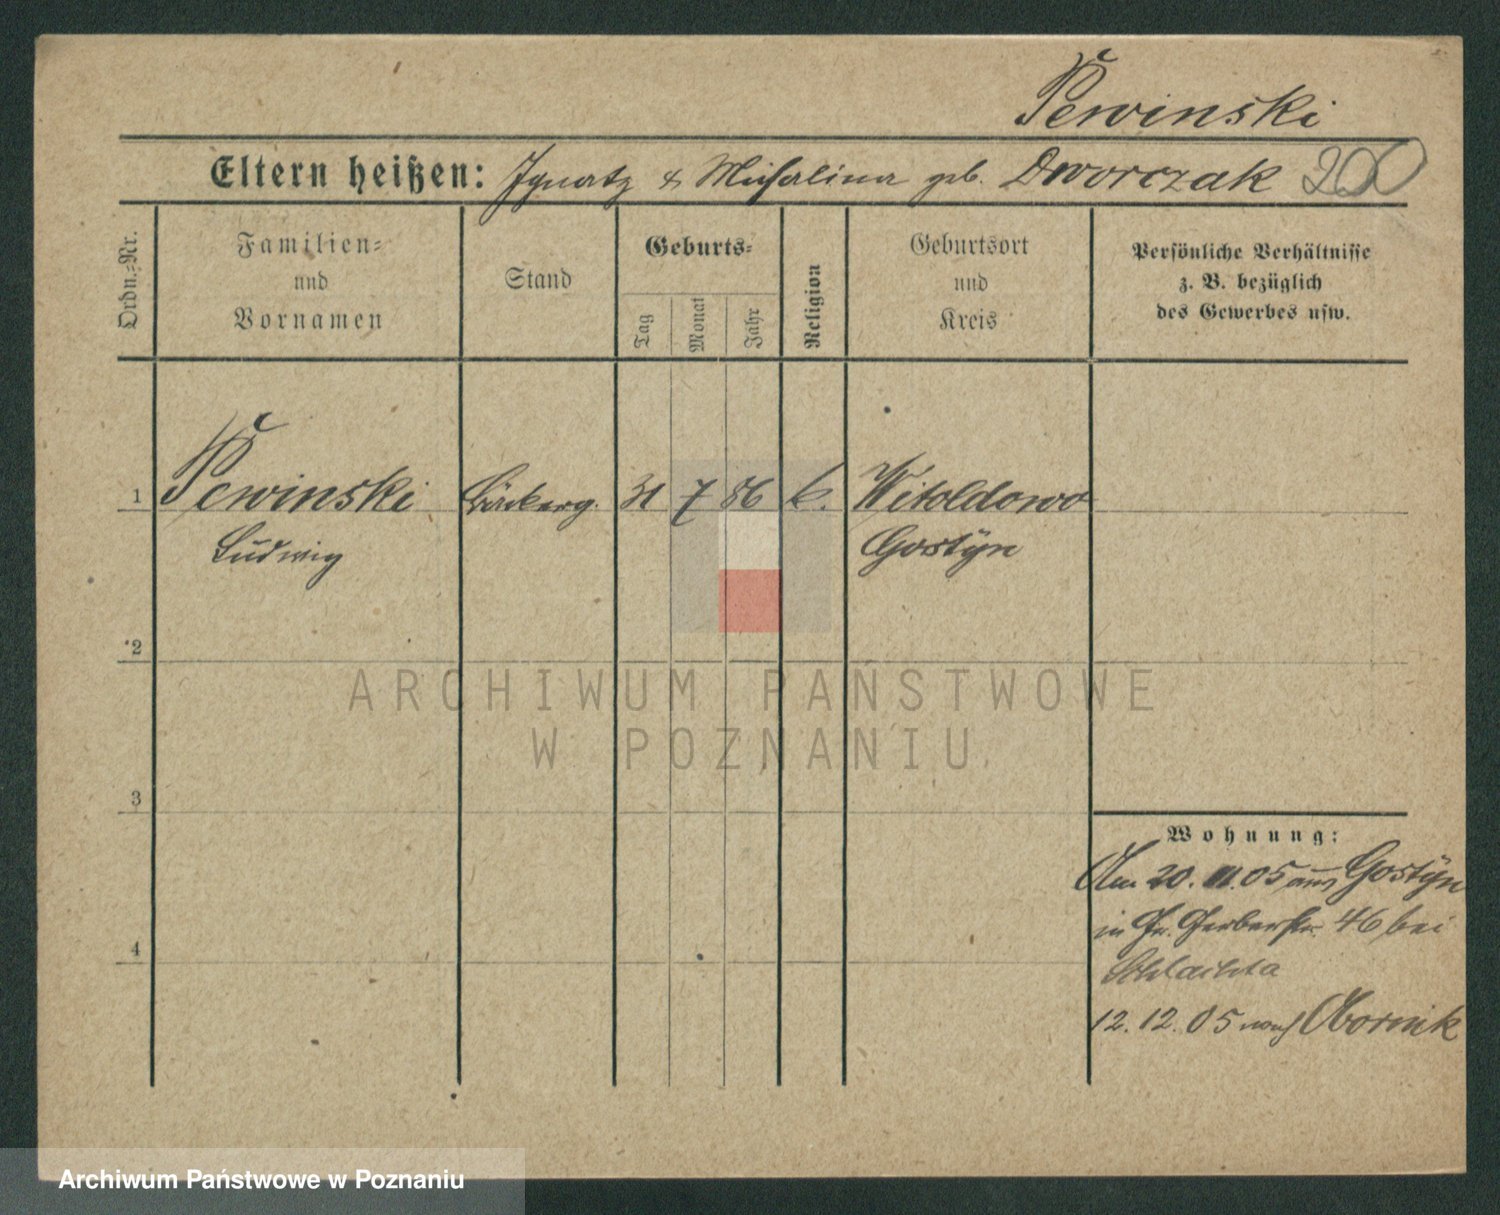 Pewinski
Eltern heißen: Ignatz & Michalina geb. Dworczak 200
Ordn.-Nr.
Familien-
und
Vornamen
Stand
Geburts-
Tag
Monat
Jahr
Religion
Geburtsort
und
Kreis
Persönliche Verhältnisse
z. B. bezüglich
des Gewerbes usw.
1 Pewinski Bäckerg. 31 7 86 k. Witoldowo
Ludwig Gostÿn
2
ARCHIWUM PAŃSTWOWE
W POZNANIU
3
Wohnung:
Am 20. 11. 05 aus Gostÿn
in Gr. Gerberstr. 46 bei
Schlachta
4
12. 12. 05 nach Obornik
Archiwum Państwowe w Poznaniu